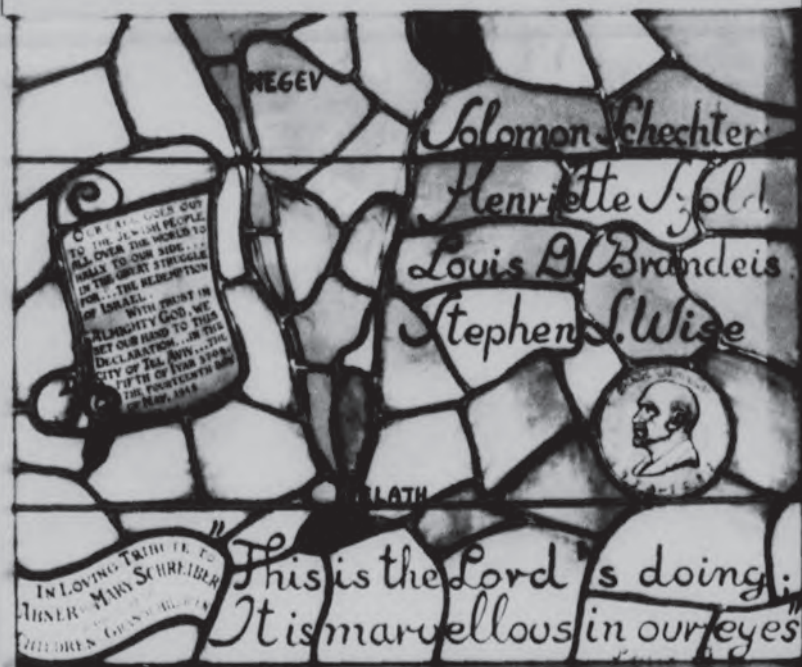 NEGEV
Solomon Schechter
Henriette Szold
Louis D. Brandeis
Stephen S. Wise
OUR CALL GOES OUT
TO THE JEWISH PEOPLE
ALL OVER THE WORLD TO
RALLY TO OUR SIDE...
IN THE GREAT STRUGGLE
FOR...THE REDEMPTION
OF ISRAEL.
WITH TRUST IN
ALMIGHTY GOD, WE
SET OUR HAND TO THIS
DECLARATION...IN THE
CITY OF TEL AVIV...THE
FIFTH OF IYAR 5708,
THE FOURTEENTH DAY
OF MAY, 1948
ELATH
IN LOVING TRIBUTE TO
ABNER & MARY SCHREIBER
CHILDREN
"This is the Lord's doing;
It is marvellous in our eyes"